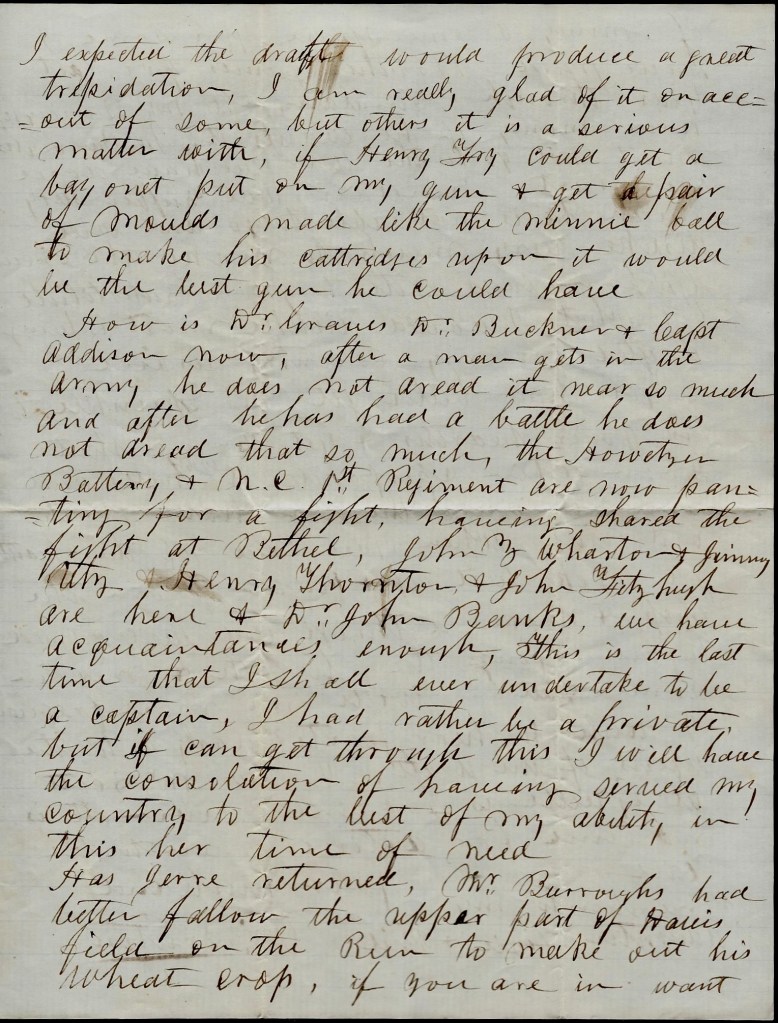 I expected the draft would produce a great
trepidation, I am really glad of it on acc=
=out of some, but others it is a serious
matter with, if Henry Fry could get a
bayonet put on my gun & get a pair
of moulds made like the minnie ball
to make his cattridges upon it would
be the best gun he could have
How is Dr. Graves Dr. Buckner & Capt
Addison now, after a man gets in the
army he does not dread it near so much
and after he has had a battle he does
not dread that so much, the Howetzer
Battery & N.C. 1st Regiment are now pan=
=ting for a fight, haveing shared the
fight at Bethel, John Wharton & Jimmy
Utz & Henry Thornton & John Fitzhugh
are here & Dr. John Banks, we have
acquaintances enough, This is the last
time that I shall ever undertake to be
a captain, I had rather be a private,
but if can get through this I will have
the consolation of haveing served my
country to the best of my ability in
this her time of need
Has Jerre returned, Mr. Burroughs had
better fallow the upper part of
field on the Run to make out his
wheat crop, if you are in want